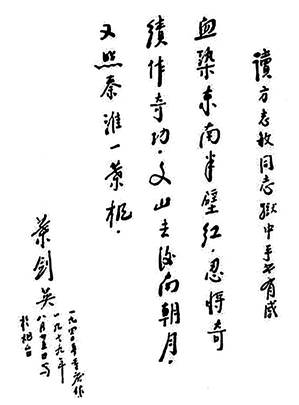 讀方志敏同志獄中手书有感
血染东南半壁紅。忍将奇
績作奇功。文山去後南朝月。
又照秦淮一葉楓。
葉剑英
一九四〇年重庆作
一九七九年
八月 日书
於烟台